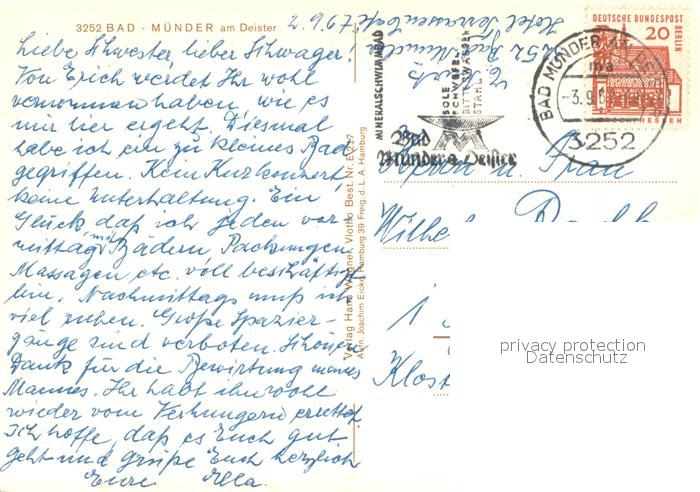 3252 BAD - MÜNDER am Deister
2.9.67.
Liebe Schwester lieber Schwager!
Von Erich werdet Ihr wohl
vernommen haben, wie es
mir hier ergeht. Diesmal
habe ich ein zu kleines Bad
gegriffen. Kein Kurkonzert
keine Unterhaltung. Ein
Glück daß ich jeden vor
mittag mit Bädern, Packungen
Massagen etc. voll beschäftigt
bin. Nachmittags muß ich
viel ruhen. Große Spazier-
gänge sind verboten. Schönen
Dank für die Bewirtung meines
Mannes. Ihr habt ihn wohl
wieder vom Verhungern errettet
Ich hoffe, daß es Euch gut
geht und grüße Euch herzlich
Eure Ella.
Verlag Hans Wagner, Vlotho Best. Nr.
Joachim Eicke, Hamburg 39 Freig. d. L. A. Hamburg
MINERALSCHWIMMBAD
SOLE
SCHWEFEL
BITTERWASSER
STAHL
Bad
Münder a. Deister
BAD MÜNDER
ma
-3.9.
3252
DEUTSCHE BUNDESPOST
BERLIN
20
HESSEN
Herrn u. Frau
Wilhe
Klost
privacy protection
Datenschutz